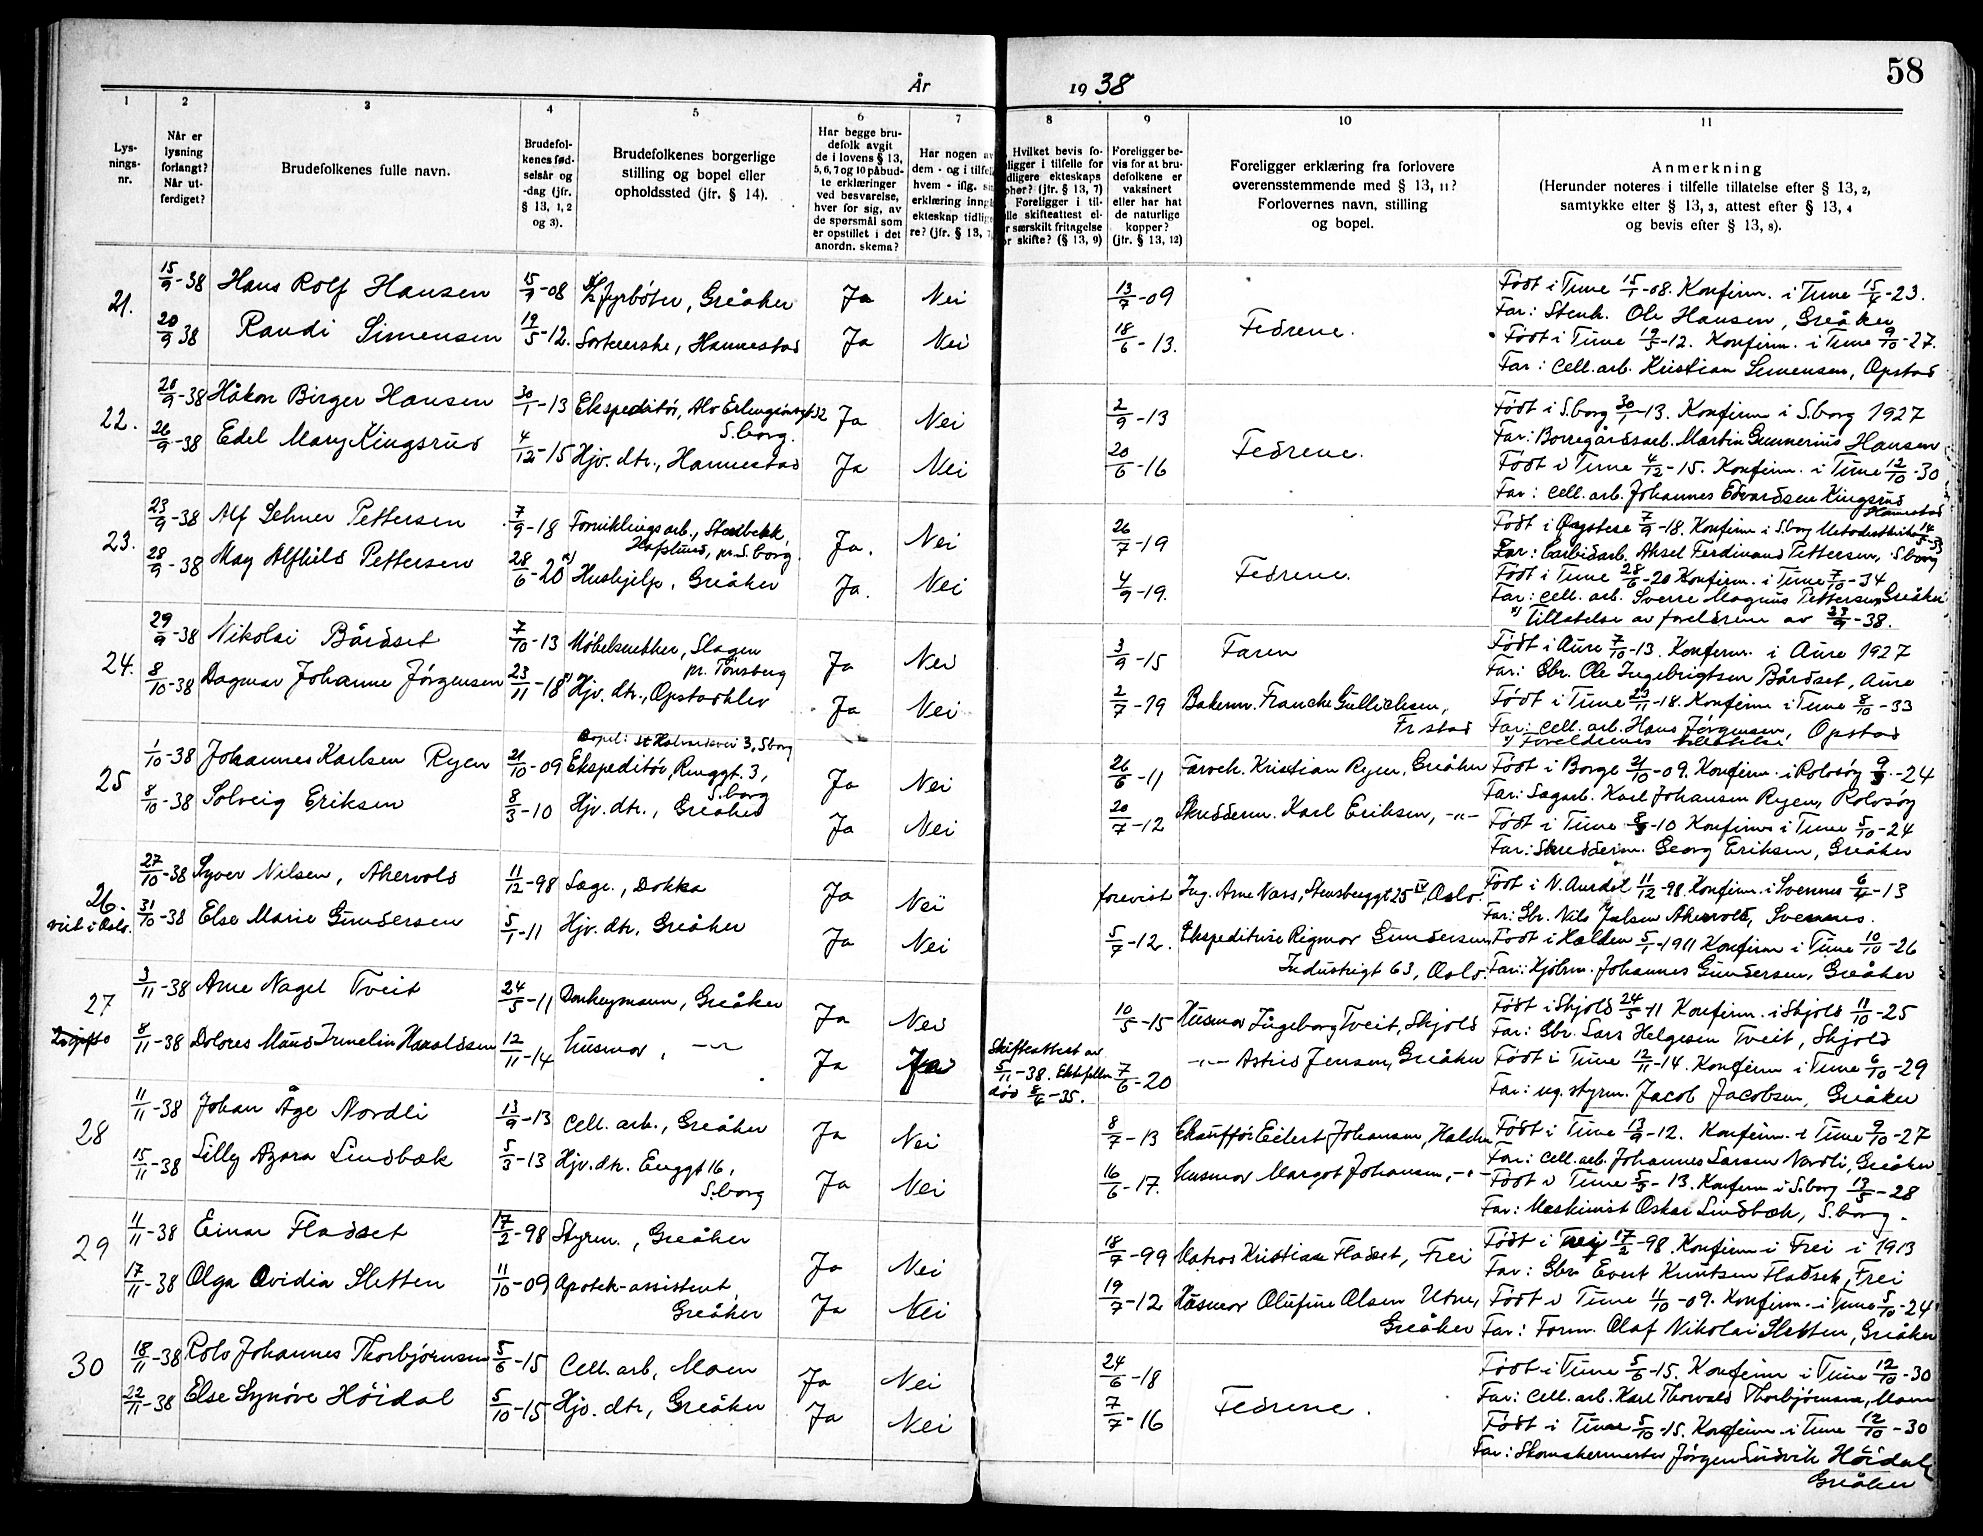 58
År 1938
1
2
3
4
5
6
7
8
9
10
11
Lys-
nings-
nr.
Når er
lysning
forlangt?
Når ut-
ferdiget?
Brudefolkenes fulle navn.
Brudefol-
kenes fød-
selsår og
-dag (jfr.
§ 13, 1, 2
og 3).
Brudefolkenes borgerlige
stilling og bopel eller
opholdssted (jfr. § 14).
Har begge bru-
defolk avgit
de i lovens § 13,
5, 6, 7 og 10 påbud-
te erklæringer
ved besvarelse,
hver for sig, av
de spørsmål som
er opstillet i det
anordn. skema?
Har nogen av
dem - og i tilfelle
hvem - iflg.
erklæring inng
ekteskap tidlig
re? (jfr. § 13,
Hvilket bevis fo-
ligger i tilfelle for
dligere ekteskaps
ophør? (jfr. § 13, 7)
Foreligger i til-
lle skifteattest el-
r særskilt fritagelse
or skifte? (§ 13, 9)
Foreligger be-
vis for at bru-
defolkene er
vaksinert
eller har hat
de naturlige
kopper?
(jfr. § 13, 12)
Foreligger erklæring fra forlovere
overensstemmende med § 13, 11?
Forlovernes navn, stilling
og bopel.
Anmerkning
(Herunder noteres i tilfelle tillatelse efter § 13, 2,
samtykke efter § 13, 3, attest efter § 13, 4
og bevis efter § 13, 8).
21. 15/9-38 Hans Rolf Hansen 15/1-08 fyrbøter, Greåker Ja Nei 13/7-09 Fedrene. Født i Tune 15/1-08. Konfirm. i Tune -23.
Far: Stenh. Ole Hansen, Greåker
20/9 38 Randi Simensen 19/5-12. Sorterske, Hannestad Ja Nei 18/6-13. Født i Tune 19/5-12. Konfirm. i Tune 9/10-27.
Far: Cell.arb. Kristian Simensen, Opstad
22. 20/9-38 Håkon Birger Hansen 30/1-13 Ekspeditør, Alv Erlingsonsgt 32
S.borg. Ja Nei 2/9-13 Fedrene. Født i S.borg 30/1-13. Konfirm i S.borg 1927
Far: Borregårdsarb. Martin Gunnerius Hansen
26/9-38 Edel Mary Kingsrud 4/12-15 Hjv. dtr., Hannestad Ja Nei 20/6-16 Født i Tune 4/12-15. Konfirm. i Tune 12/10-30
Far: Cell. arb. Johannes Edvardsen Kingsrud
Hannestad
23. 23/9-38 Alf Pettersen 7/9-18 Forniklingsarb.,
Hafslund, pr. S.borg. Ja. Nei 26/7-19 Fedrene. Født i 7/9-18. Konfirm i S.borg Metodistkirke
Far: Carbidarb. Aksel Ferdinand Pettersen, S.borg
28/9-38 May Alfhild Pettersen 28/6-20 x) Hushjelp, Greåker Ja. Nei 4/9-19. Født i Tune 28/6-20 Konfirm. i Tune 7/10-34
Far: Cell. arb. Sverre Magnus Pettersen, Greåker
x) Tillatelse av foreldrene av 23/9-38.
24. 29/9-38 Nikolai Bårdset 7/10-13 Møbelsnekker, Slagen
pr. Tønsberg Ja Nei 3/9-15 Faren Født i Aure 7/10-13. Konfirm. i Aure 1927
Far: Gbr. Ole Ingebrigtsen Bårdset, Aure
8/10-38 Dagmar Johanne Jørgensen 23/11-18 x) Hjv. dtr., Opstadklev Ja Nei 2/7-19 Bakerm. Francke Gullichsen,
Fr.stad Født i Tune 23/11-18. Konfirm i Tune 8/10-33
Far: Cell. arb. Hans Jørgensen, Opstad
x) Foreldrenes tillatelse
Bopel: St Halvardsvei 3, S.borg
25 1/10-38 Johannes Karlsen Ryen 21/10-09 Ekspeditør, Ringgt. 3,
S.borg Ja Nei 26/6-11 Farveh. Kristian Ryen, Greåker Født i Borge 21/10-09. Konfirm. i Rolvsøy -24
Far: Sagarb. Karl Johansen Ryen, Rolvsøy
8/10-38 Solveig Eriksen 8/3-10 Hjv. dtr., Greåker Ja Nei 20/7-12 Skredderm. Karl Eriksen, -"- Født i Tune 8/3-10 Konfirm i Tune 5/10-24
Far: Skredderm. Georg Eriksen, Greåker
26.
viet i Oslo. 27/10-38 Syver Nilsen, Akervold 11/12-98 Læge, Dokka Ja Nei forevist Ing. Arne Næss, Stensberggt 25 IV, Oslo. Født i N. Aurdal 11/12-98 Konfirm. i Svennes -13
Far: Gbr. Nils Julsen Akervold, Svennes.
31/10-38 Else Marie Gundersen 5/1-11 Hjv. dtr, Greåker Ja Nei 5/7-12. Ekspeditrise Rigmor Gundersen
Industrigt 63, Oslo. Født i Halden 5/1-1911 Konfirm i Tune 10/10-26
Far: Hjølm. Johannes Gundersen, Greåker
27 3/11-38 Arne Nagel Tveit 24/5-11 Donkeymann, Greåker Ja Nei 10/5-15 Husmor Ingeborg Tveit, Skjold Født i Skjold 24/5-11 Konfirm. i Skjold 11/10-25
Far: Gbr Lars Helgesen Tveit, Skjold
8/11-38 Dolores Maud Irmelin Haraldsen 12/11-14 husmor, -"- Ja Ja Skifteattest av
5/11-38. Ektefellen
død -35. 7/6-20 -"- Astrid Jensen, Greåker Født i Tune 12/11-14. Konfirm i Tune 6/10-29
Far: ug. styrm. Jacob Jacobsen, Greåker
28 11/11-38 Johan Åge Nordli 13/9-13 Cell. arb., Greåker Ja Nei 8/7-13 Chauffør Eilert Johansen, Født i Tune 13/9-12. Konfirm. i Tune 9/10-27
Far: Cell.arb. Johannes Larsen Nordli, Greåker
15/11-38 Lilly Azora Lindbæk 5/3-13 Hjv. dtr. Enggt 16,
S.borg Ja Nei 16/6-17. Husmor Margot Johansen, -"- Født i Tune 5/3-13. Konfirm i S.borg 13/5-28
Far: Maskinist Oskar Lindbæk, S.borg.
29 11/11-38 Einar Fladset 17/2-98 Styrm., Greåker Ja Nei 18/7-99 Matros Kristian Fladset, Frei Født i Frei 17/2-98. Konfirm i Frei i 1913
Far: Gbr Evert Knutsen Fladset, Frei
17/11-38 Olga Ovidia Sletten 11/10-09 Apotek-assistent,
Greåker Ja Nei 19/7-12 Husmor Olufine Olsen Utne,
Greåker Født i Tune 11/10-09. Konfirm. i Tune 5/10-24
Far: Form. Olaf Nikolai Sletten, Greåker
30 18/11-38 Rolv Johannes Thorbjørnsen 5/6-15 Cell. arb, Moen Ja Nei 24/6-18 Fedrene. Født i Tune 5/6-15. Konfirm i Tune 12/10-30
Far: Cell. arb. Karl Thorvald Thorbjørnsen, Moen
22/11-38 Else Synøve Höidal 5/10-15 Hjv. dtr, Greåker Ja Nei 7/7-16 Født i Tune 5/10-15. Konfirm. i Tune 12/10-30
Far: Skomakermester Jørgen Ludvik Höidal,
Greåker